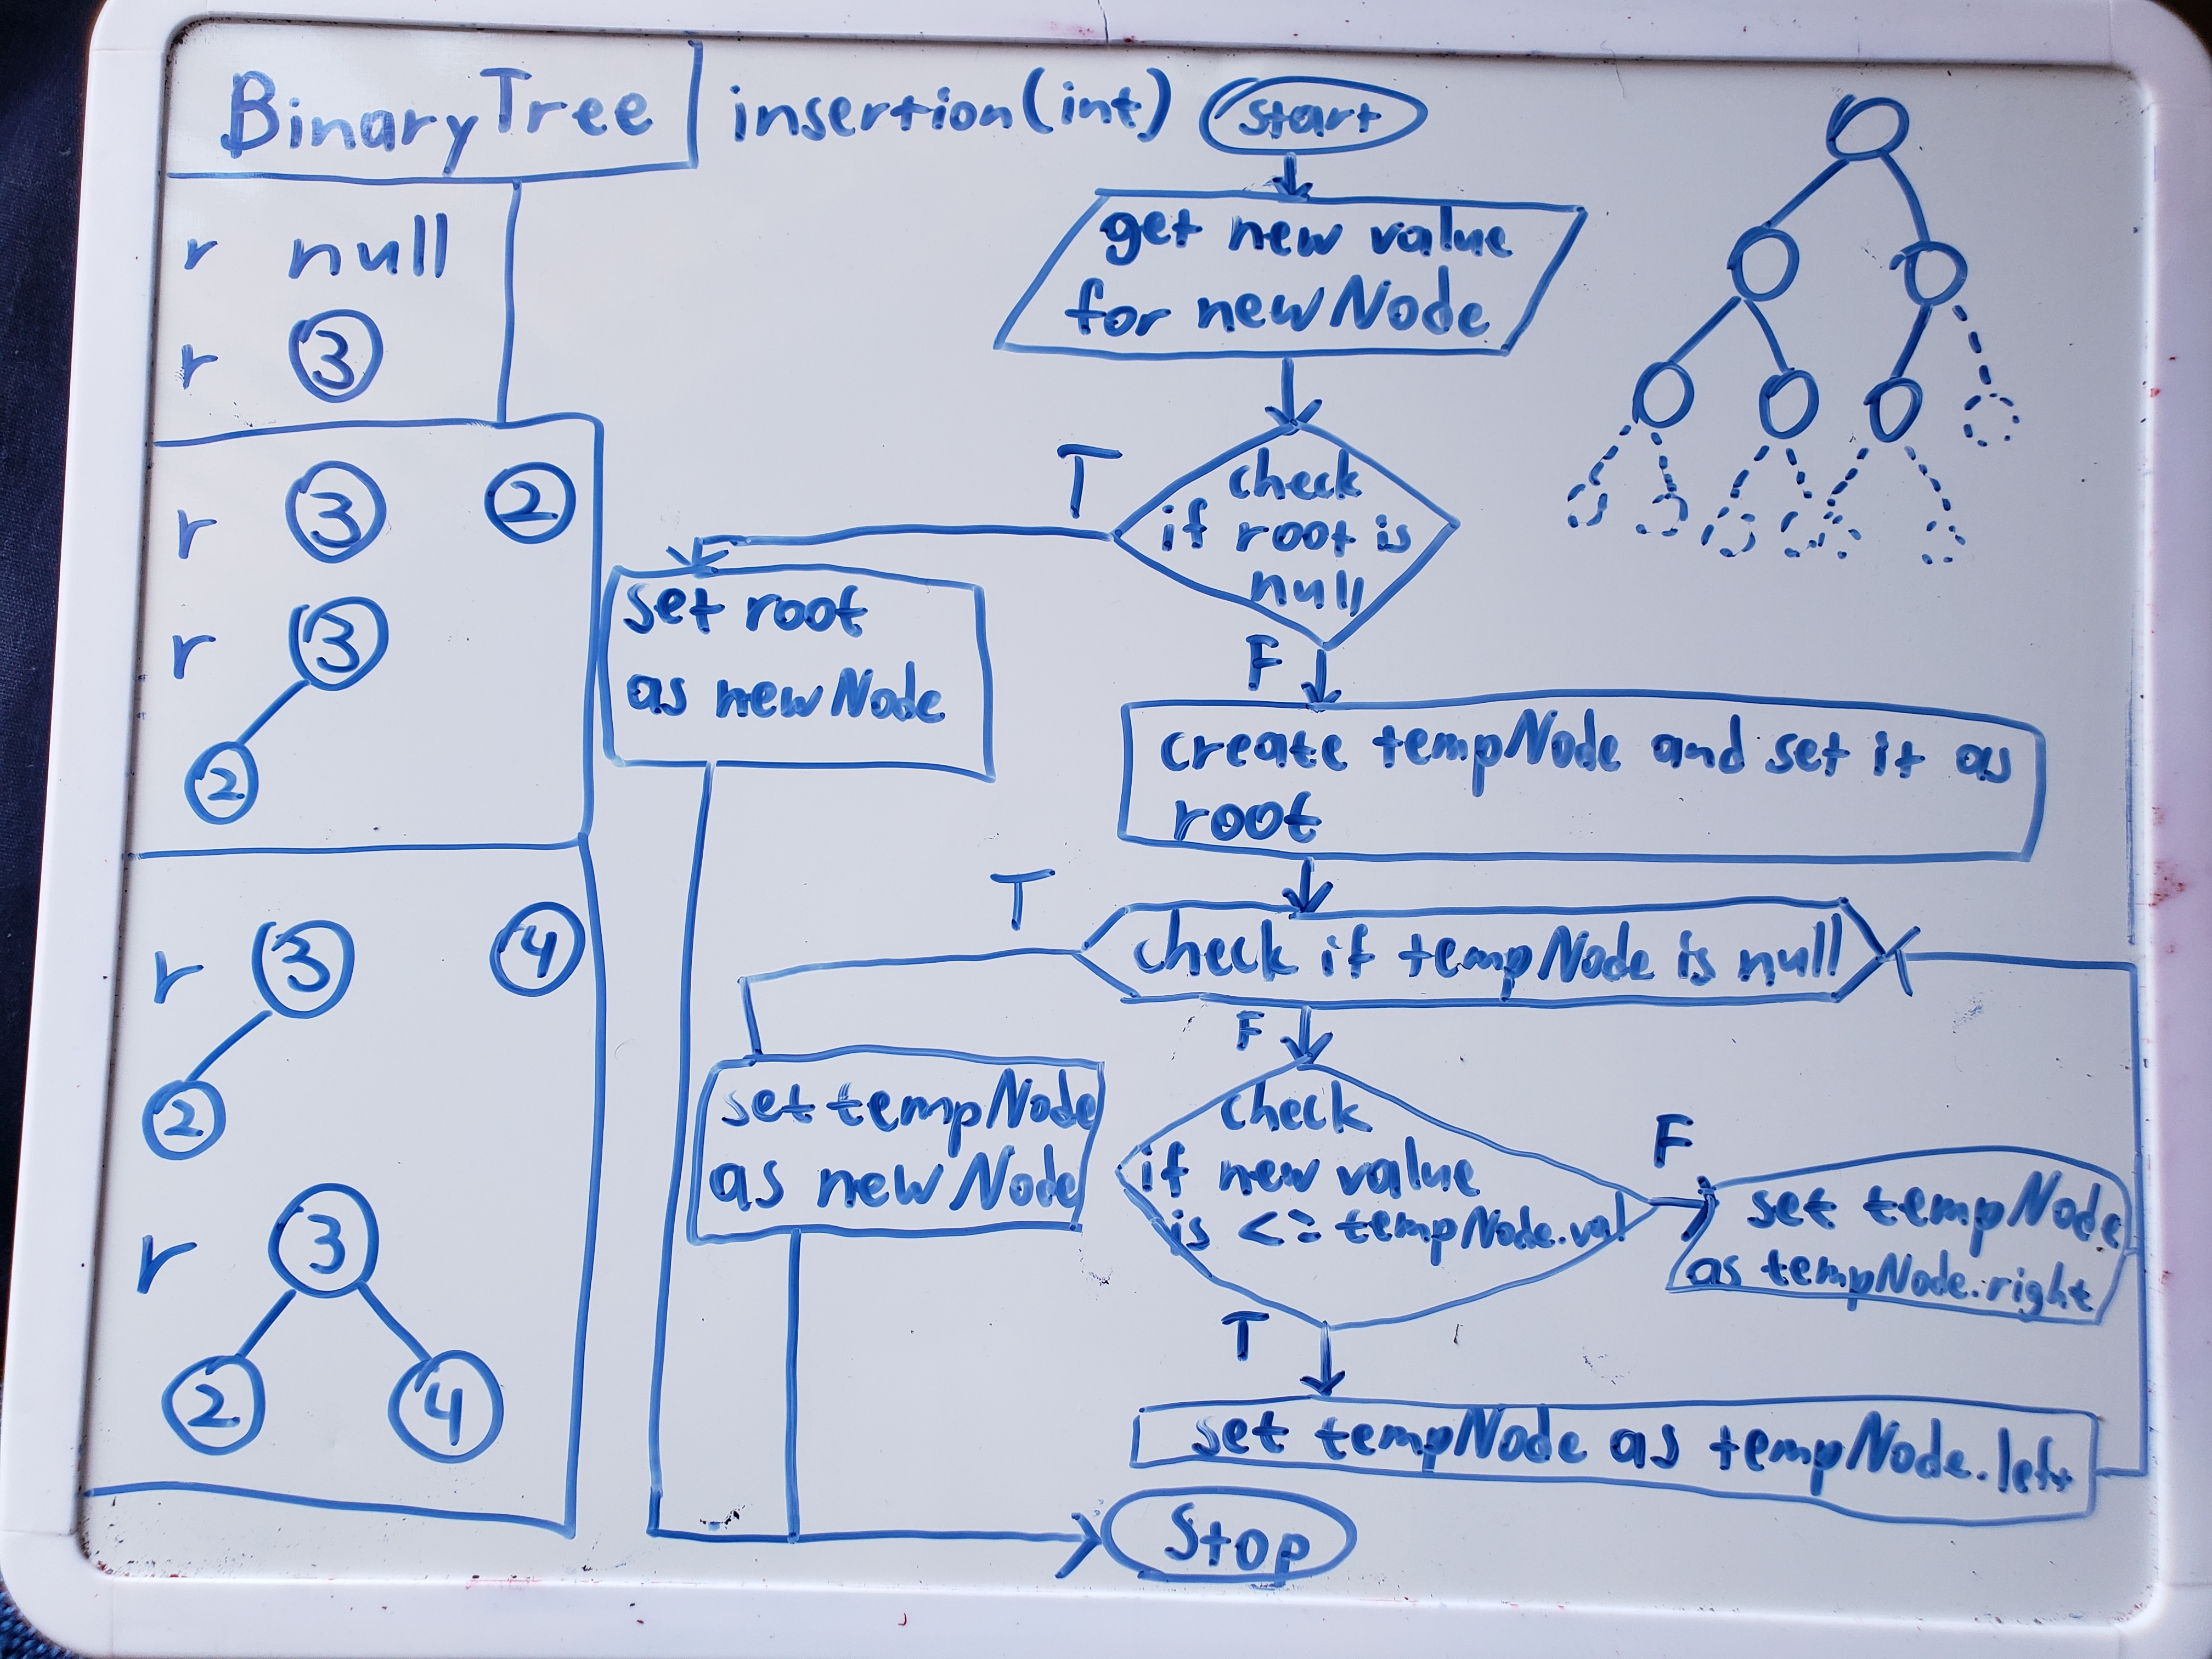 BinaryTree
insertion(int)
r null
r 3
r 3 2
r 3
2
r 3 4
2
r 3
2 4
start
get new value
for newNode
check
if root is
null
T
set root
as newNode
F
create tempNode and set it as
root
check if tempNode is null
T
set tempNode
as newNode
F
check
if new value
is <= tempNode.val
F
set tempNode
as tempNode.right
T
set tempNode as tempNode.left
Stop